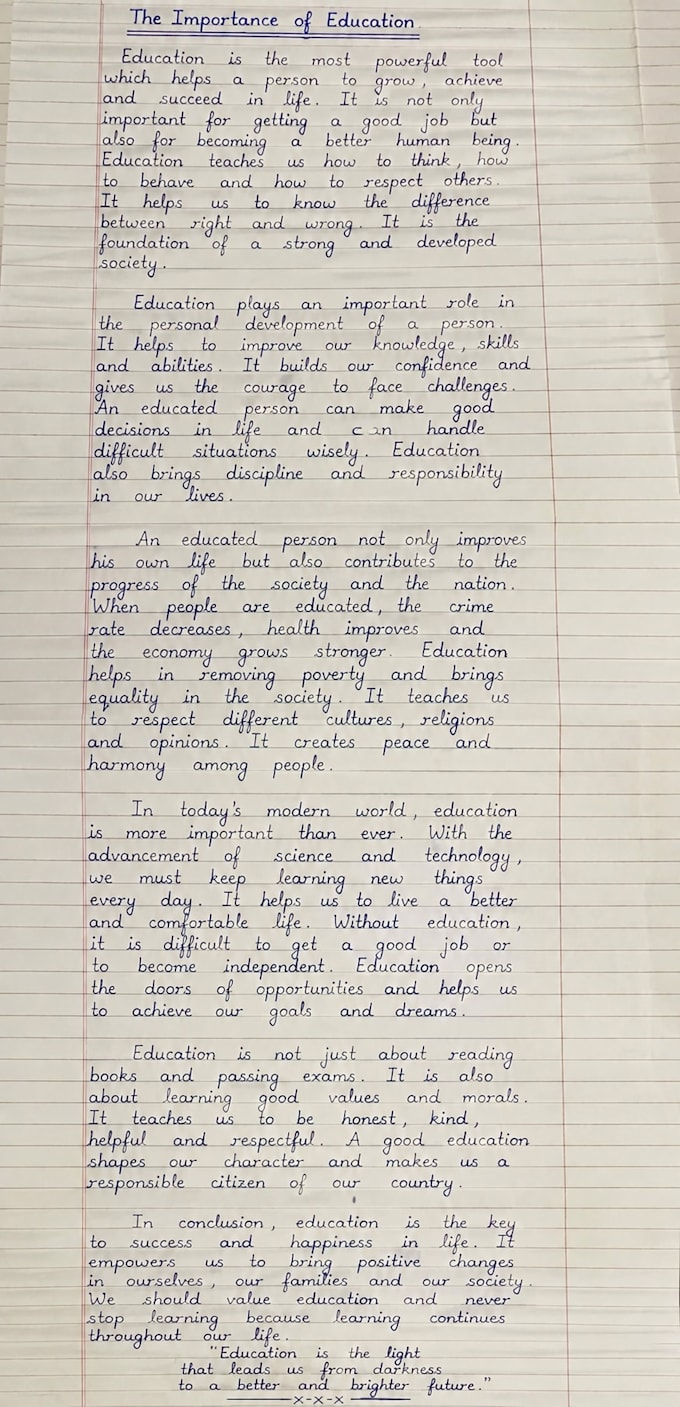 The Importance of Education
Education is the most powerful tool
which helps a person to grow, achieve
and succeed in life. It is not only
important for getting a good job but
also for becoming a better human being.
Education teaches us how to think, how
to behave and how to respect others.
It helps us to know the difference
between right and wrong. It is the
foundation of a strong and developed
society.
Education plays an important role in
the personal development of a person.
It helps to improve our knowledge, skills
and abilities. It builds our confidence and
gives us the courage to face challenges.
An educated person can make good
decisions in life and can handle
difficult situations wisely. Education
also brings discipline and responsibility
in our lives.
An educated person not only improves
his own life but also contributes to the
progress of the society and the nation.
When people are educated, the crime
rate decreases, health improves and
the economy grows stronger. Education
helps in removing poverty and brings
equality in the society. It teaches us
to respect different cultures, religions
and opinions. It creates peace and
harmony among people.
In today's modern world, education
is more important than ever. With the
advancement of science and technology,
we must keep learning new things
every day. It helps us to live a better
and comfortable life. Without education,
it is difficult to get a good job or
to become independent. Education opens
the doors of opportunities and helps us
to achieve our goals and dreams.
Education is not just about reading
books and passing exams. It is also
about learning good values and morals.
It teaches us to be honest, kind,
helpful and respectful. A good education
shapes our character and makes us a
responsible citizen of our country.
In conclusion, education is the key
to success and happiness in life. It
empowers us to bring positive changes
in ourselves, our families and our society.
We should value education and never
stop learning because learning continues
throughout our life.
"Education is the light
that leads us from darkness
to a better and brighter future."
x-x-x